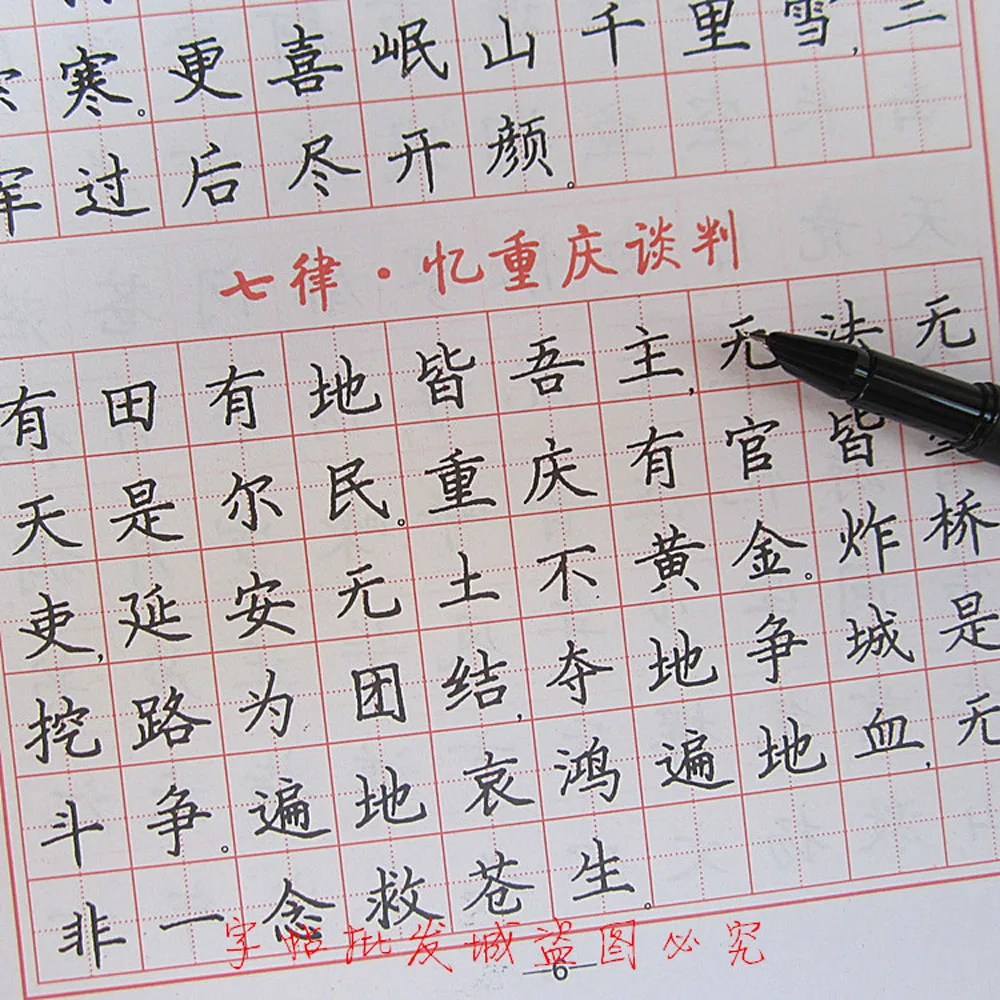 寒。更喜岷山千里雪,三
军过后尽开颜。
七律·忆重庆谈判
有田有地皆吾主,无法无
天是尔民。重庆有官皆
吏,延安无土不黄金。炸桥
挖路为团结,夺地争城是
斗争。遍地哀鸿遍地血,无
非一念救苍生。
字帖批发城盗图必究
6